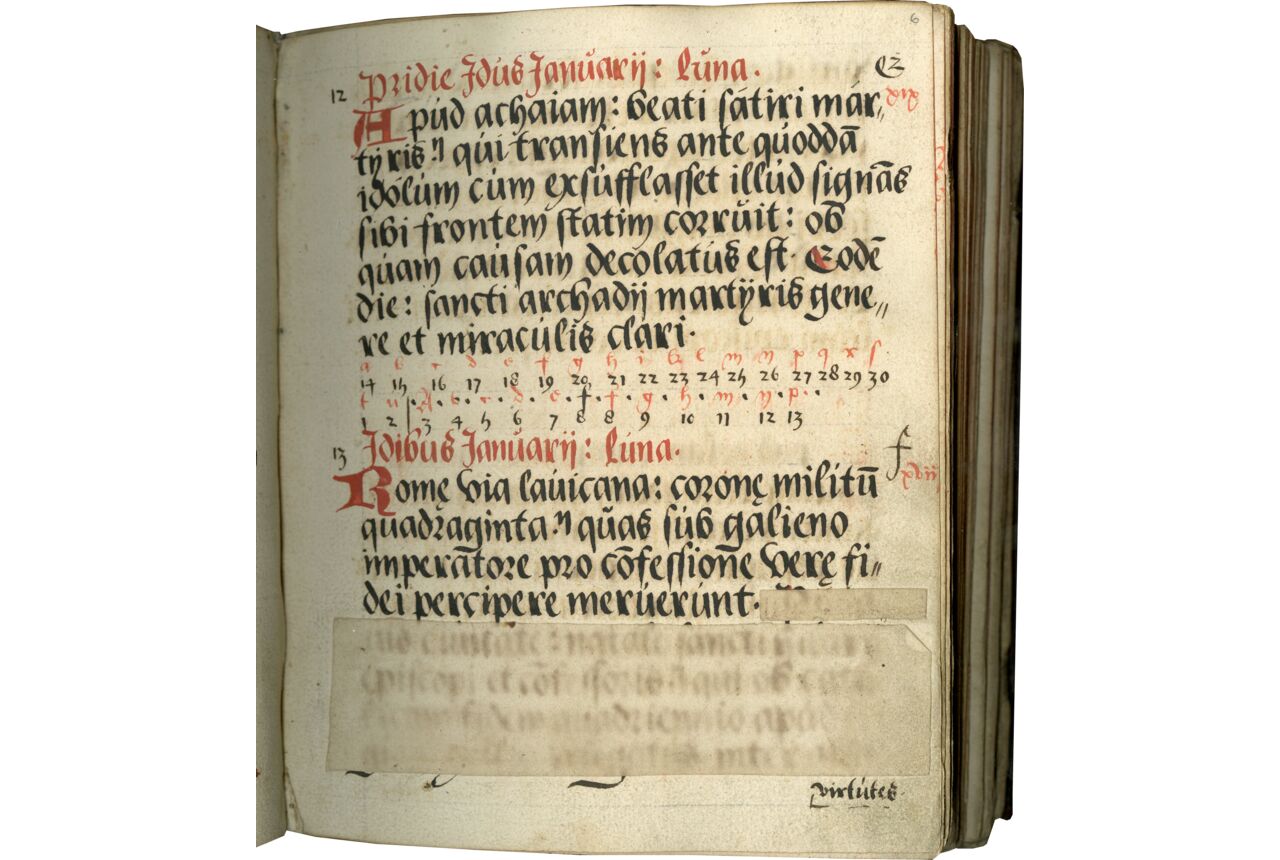 6
12 Pridie Idus Januarij: Luna. e
Apud achaiam: beati satiri mar„ xix
tyris qui transiens ante quoddā
idolum cum exsufflasset illud signās
sibi frontem statim corruit: ob
quam causam decolatus est. Eodē
die: sancti archadij martyris gene„
re et miraculis clari.
a b c d e f g h i k l m n p q r s
14 15 16 17 18 19 20 21 22 23 24 25 26 27 28 29 30
t u A b c d e f f g h m n p
1 2 3 4 5 6 7 8 8 9 10 11 12 13
13 Idibus Januarij: Luna. f
Romę via lauicana: coronę militū xviij
quadraginta quas sub galieno
imperatore pro cōfessione verę fi„
dei percipere meruerunt.
tus ciuitate: natale sancti
episcopi et cōfessoris qui ob
virtutes.